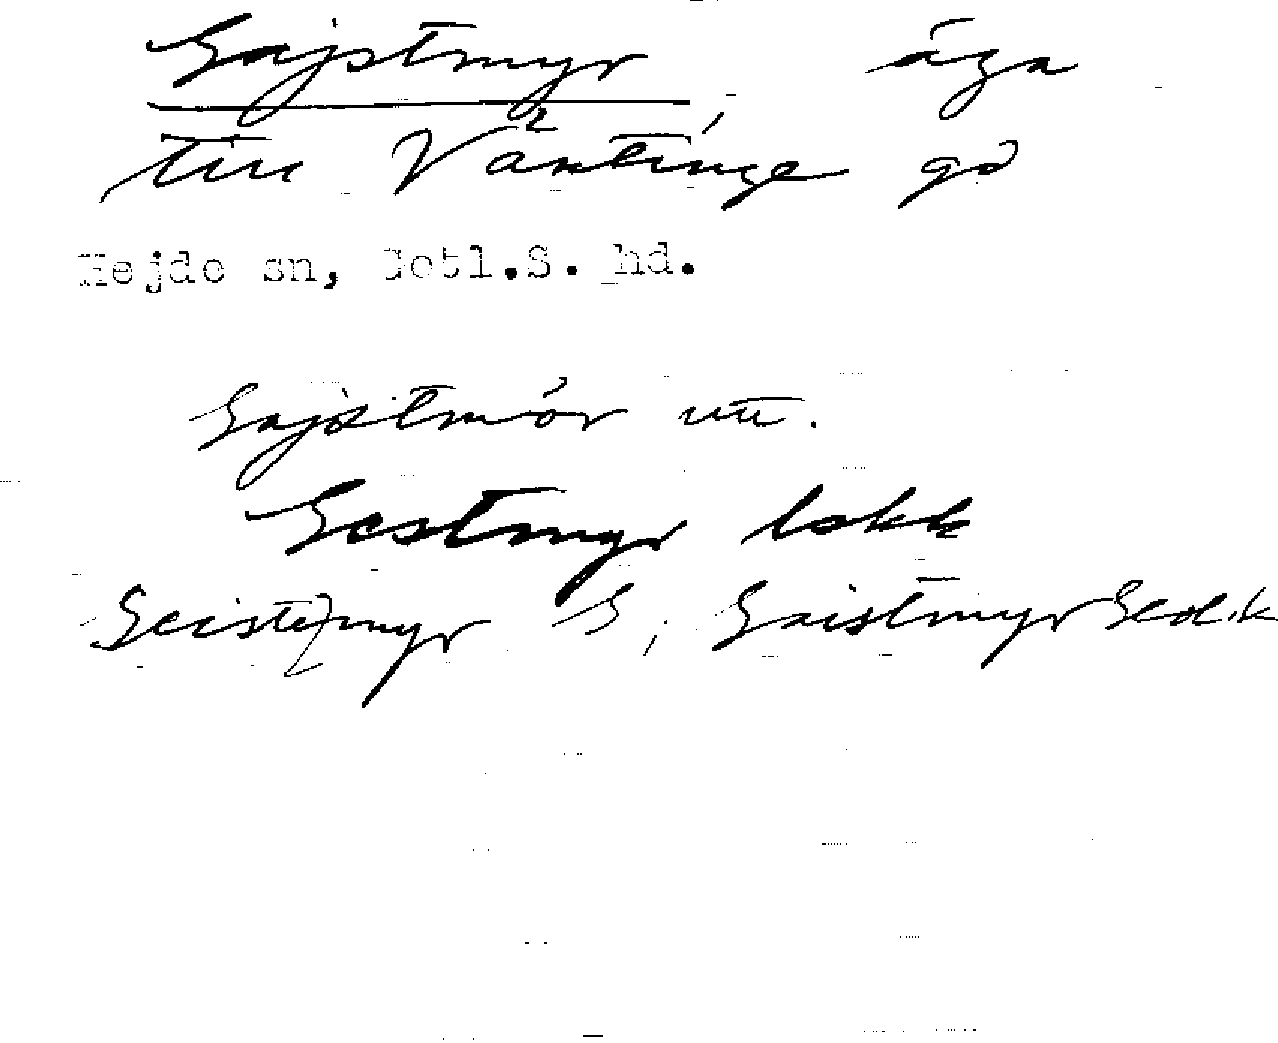 Gajstmyr, äga
till Väntinge gd
Hejde sn, Gotl.S. hd.
Gajstmör utt.
Gestmyr lokk
Geist(e)myr G; Gaistmyr Gedk